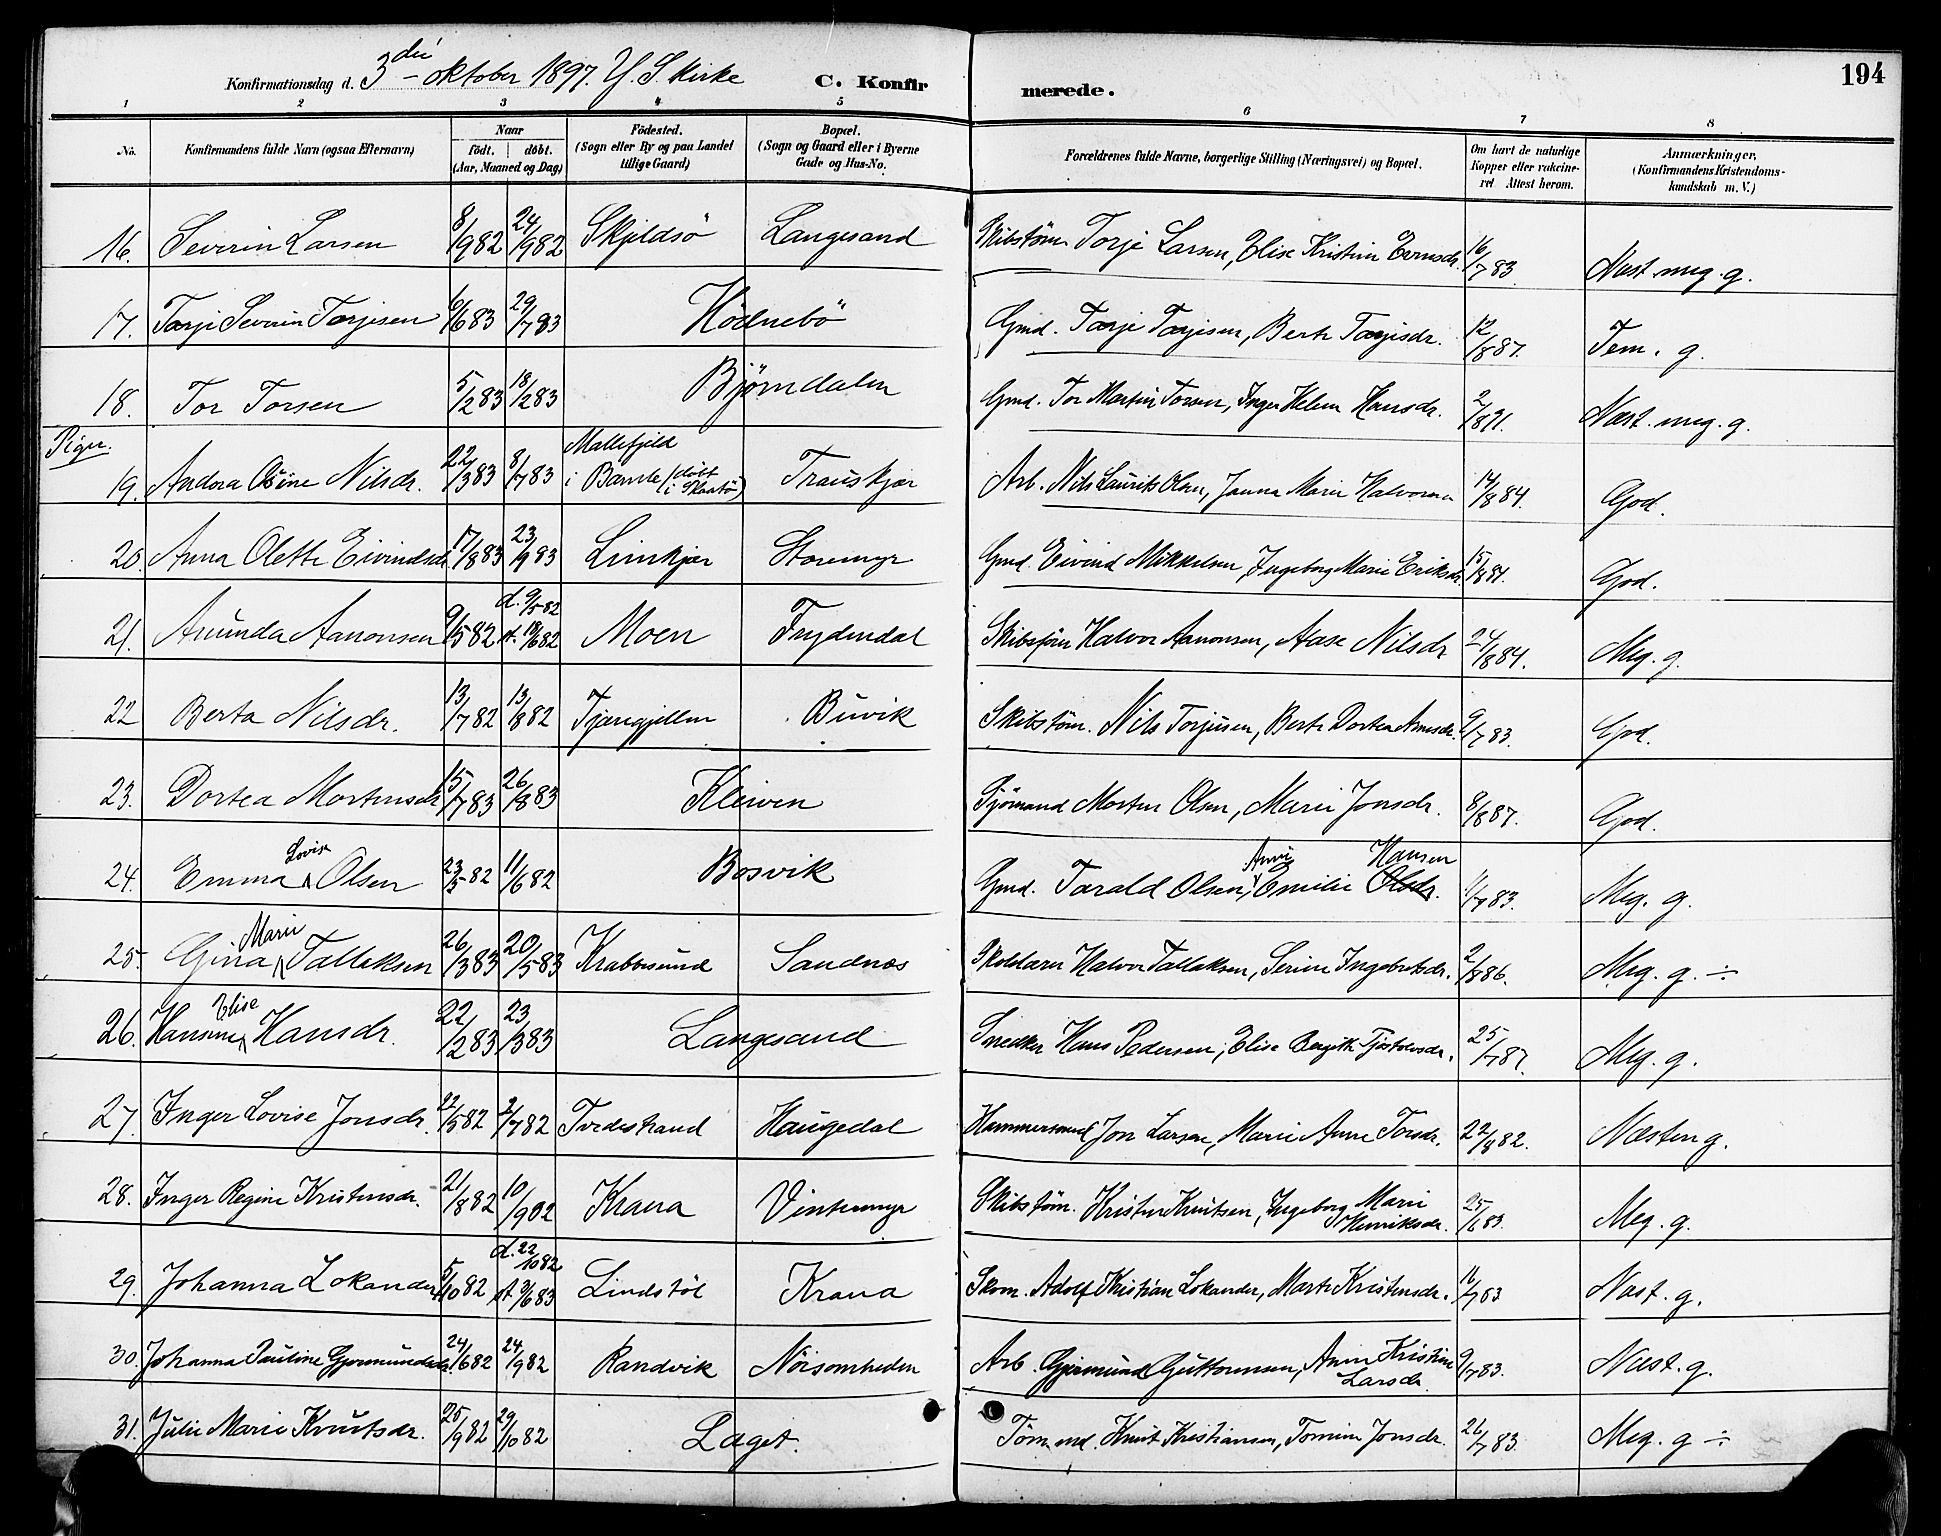 194
Konfirmationsdag d. 3die oktober 1897. Y. S. Kirke C. Konfirmerede.
1 2 3 4 5 6 7 8
No. Konfirmandens fulde Navn (ogsaa Efternavn) Naar födt. döbt. (Aar, Maaned og Dag) Födested. (Sogn eller By og paa Landet tillige Gaard) Bopæl. (Sogn og Gaard eller i Byerne Gade og Hus-No. Forældrenes fulde Navne, borgerlige Stilling (Næringsvei) og Bopæl. Om havt de naturlige Kopper eller vakcineret Attest herom. Anmærkninger. (Konfirmandens Kristendomskundskab m. V.)
16. Severin Larsen 8/9 82 24/9 82 Skjeldsö Langesand Skibstøm. Torje Larsen, Elise Kristine Evensdr. 16/7 83. Næst. meg. g.
17. Tarje Severin Tarjesen 6/6 83 29/7 83 Hödnebö Gmd. Tarje Tarjesen, Berte Tarjesdr. 12/8 87. Tem. g.
18. Tor Torsen 5/2 83 18/2 83 Björndalen Gmd. Tor Martin Torsen, Inger Helene Hansdr. 2/8 91. Næst. meg. g.
Piger.
19. Andora Osine Nilsdr. 22/3 83 8/7 83 Mallefjeld i Bamle (döbt i Skaatö) Trauskjær Arb. Nils Laurits Olsen, Janna Marie Halvorsen 14/8 84. God.
20. Anna Olette Eivindsdr 17/8 83 23/9 83 Limkjær Storemyr Gmd. Eivind Mikkelsen, Ingeborg Marie Eriksdr 15/8 84. God.
21. Anunda Aanonsen 9/5 82 d. 9/5 82 st. 18/6 82 Moen Frydendal Skibsförer Halvor Aanonsen, Aase Nilsdr 24/8 84. Meg. g.
22 Berta Nilsdr. 13/7 82 13/8 82 Tjæregjellen Buvik Skibstøm. Nils Torjusen, Berte Dortea Arnesdr. 9/7 83. God.
23. Dortea Mortensdr 15/7 83 26/8 83 Kleiven Sjömand Morten Olsen, Marie Jonsdr. 8/8 87. God.
24. Emma Lovise Olsen 23/5 82 11/6 82 Bosvik Gmd. Tarald Olsen, Anne Emilie Olsdr. Hansen 11/7 83. Meg. g.
25. Gina Marie Tallaksen 26/3 83 20/5 83 Krabbesund Sandnes Skolelærer Halvor Tallaksen, Serine Ingebretsdr. 2/8 86. Meg. g. ÷
26. Hansine Elise Hansdr. 22/2 83 23/3 83 Langesand Snedker Hans Pedersen, Elise Bergitte Tjöstolvsdr. 25/7 87. Meg. g.
27. Inger Lovise Jonsdr. 22/5 82 2/7 82 Tvedestrand Haugedal Hammersmed Jon Larsen, Marie Anne Torsdr. 22/8 82. Næsten g.
28. Inger Regine Kristensdr. 21/8 82 10/9 82 Krana Vintermyr Skibstøm. Kristen Knutsen, Ingeborg Marie Henriksdr. 25/6 83. Meg. g.
29. Johanna Lokander 5/10 82 d. 22/10 82 st. 3/6 83 Lindstöl Krana Skom. Adolf Kristian Lokander, Marte Kristensdr. 16/7 83 Næst. g.
30. Johanna Pauline Gjermundsdr. 24/6 82 24/9 82 Randvik Nöisomheden Arb. Gjermund Guttormsen, Anne Kristine Larsdr. 9/7 83. Næst. g.
31. Julie Marie Knutsdr. 25/9 82 29/10 82 Laget. Tömmd. Knut Kristiansen, Tomine Jonsdr. 26/7 83. Meg. g ÷